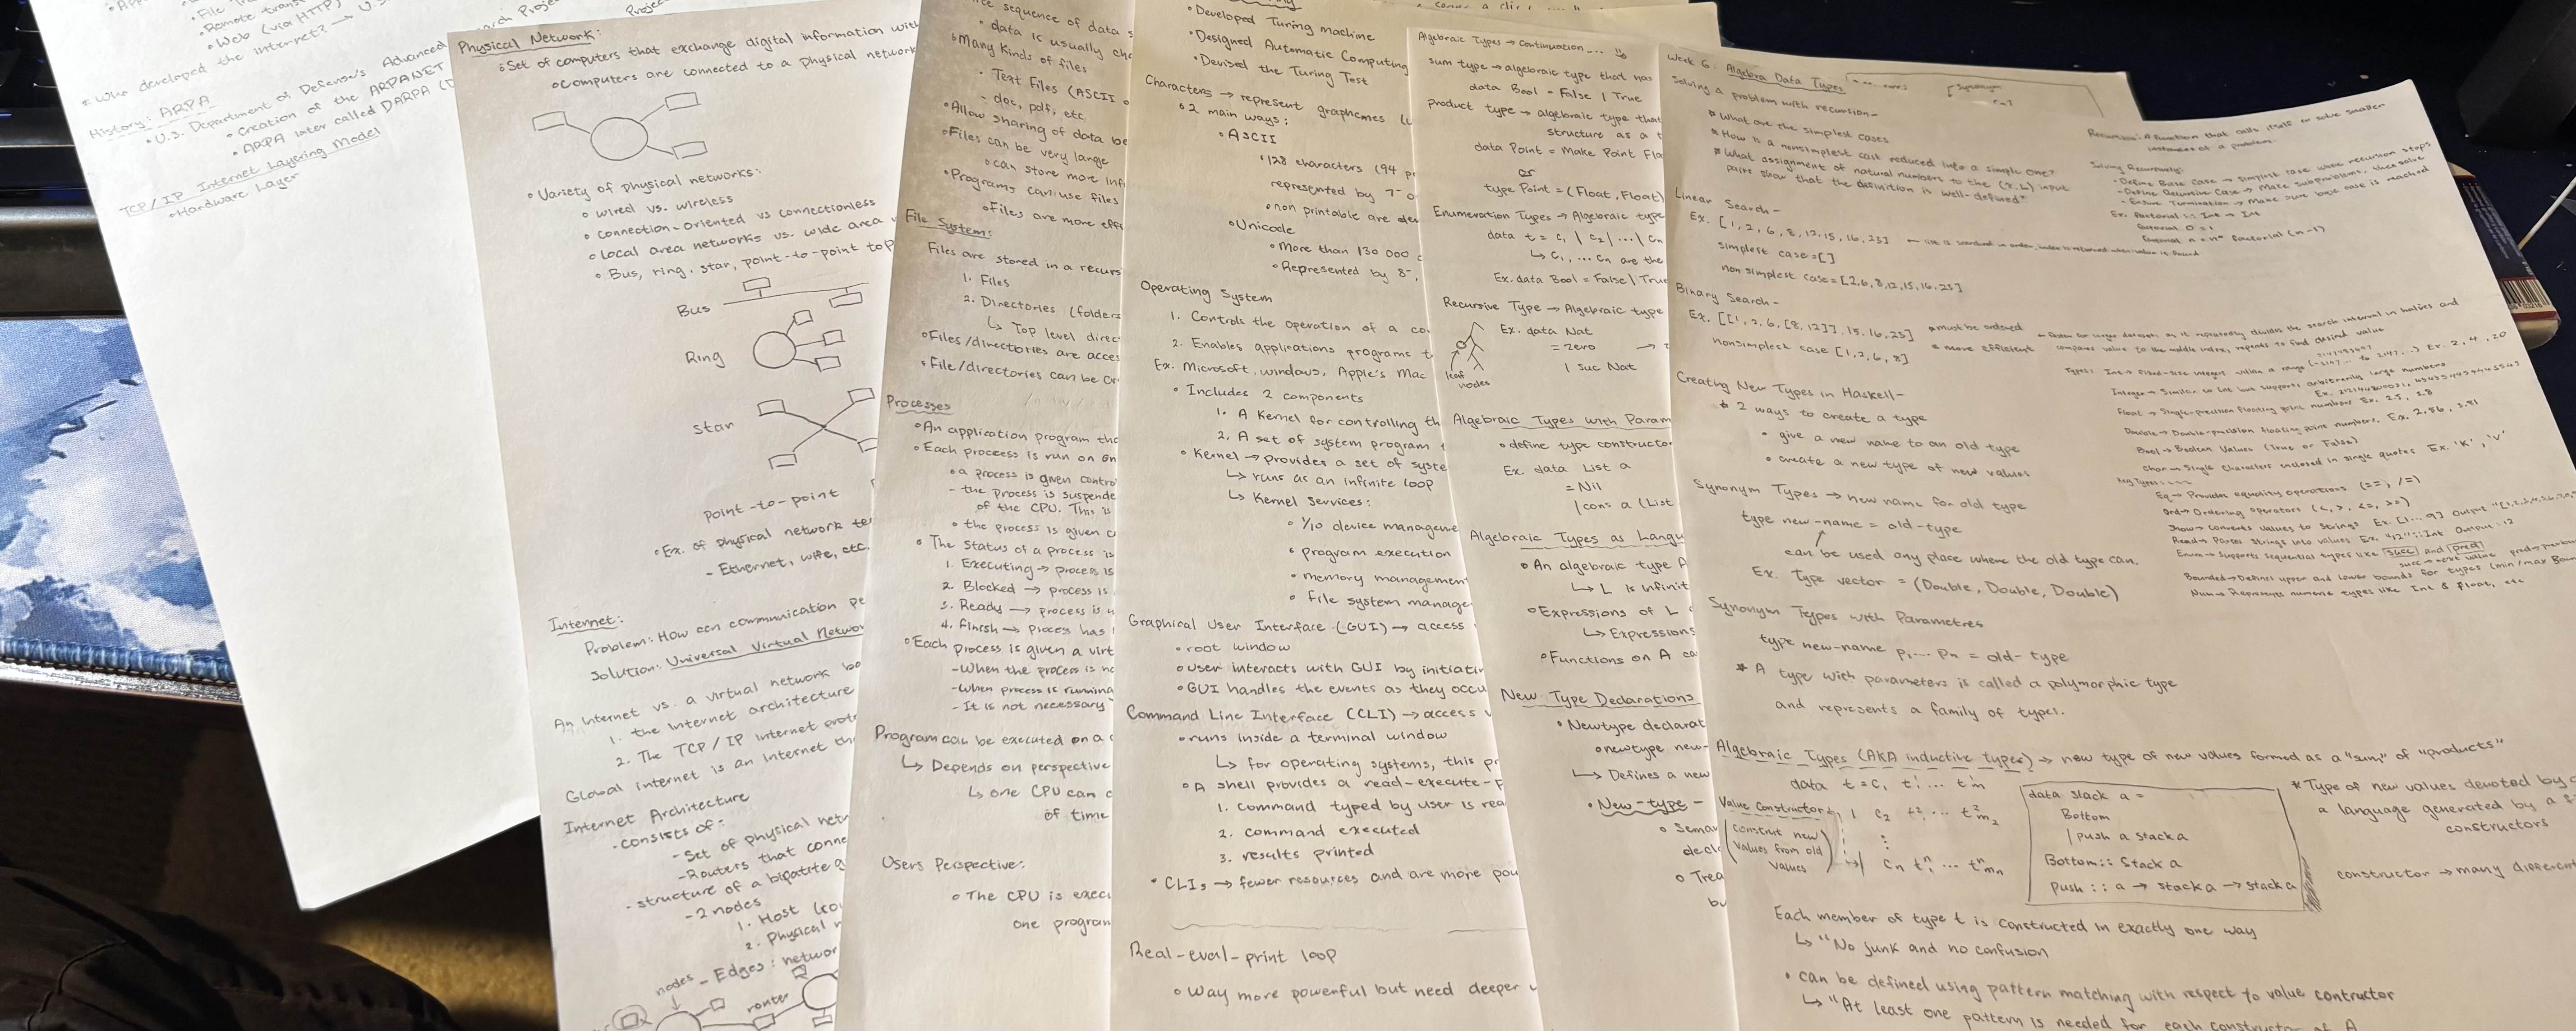 File
Remote trans
Web (via HTTP)
the internet?
* Who developed the internet?
History: ARPA
• U.S. Department of Defense's Advanced
• Creation of the ARPANET
• ARPA later called DARPA (D
TCP/IP Internet Layering Model
• Hardware Layer
Physical Network:
• Set of computers that exchange digital information with
• Computers are connected to a physical network
• Variety of physical networks:
• wired vs. wireless
• connection-oriented vs connectionless
• Local area networks vs. wide area
• Bus, ring, star, point-to-point top
Bus
Ring
star
point-to-point
• Ex. of physical network te
- Ethernet, wifie, etc.
Internet:
Problem: How can communication pe
Solution: Universal Virtual Networ
An Internet vs. a virtual network ba
1. the Internet architecture
2. The TCP/IP internet prot
Global internet is an Internet th
Internet Architecture
• consists of:
- Set of physical netw
- Routers that conne
- structure of a bipatite g
- 2 nodes
1. Host (rou
2. Physical n
nodes - Edges: networ
router
sequence of data s
• data is usually cha
• Many kinds of files
• Text Files (ASCII o
- doc, pdf, etc
• Allow sharing of data be
• Files can be very large
• can store more inf
• Programs can use files
• Files are more effi
File System:
Files are stored in a recurs
1. Files
2. Directories (folders
↳ Top level direc
• Files/directories are acces
• File/directories can be or
Processes
• An application program tha
• Each proccess is run on an
• a process is given contro
- the process is suspende
of the CPU. This is
• the process is given c
• The status of a process is
1. Executing → process is
2. Blocked → process is
3. Ready → process is w
4. Finish → process has
• Each process is given a virt
- When the process is no
- When process is running
- It is not necessary
Program can be executed on a c
↳ Depends on perspective
↳ one CPU can c
of time
Users Perspective:
• The CPU is execu
one program
• Developed Turing machine
• Designed Automatic Computing
• Devised the Turing Test
Characters → represent graphemes (
• 2 main ways:
• ASCII
• 128 characters (94 p
represented by 7-
• non printable are de
• Unicode
• More than 130 000 c
• Represented by 8-,
Operating System
1. Controls the operation of a co
2. Enables applications programs t
Ex. Microsoft, windows, Apple's Mac
• Includes 2 components
1. A Kernel for controlling th
2. A set of system program
• Kernel → provides a set of syste
↳ runs as an infinite loop
↳ Kernel Services:
• I/O device manageme
• program execution
• memory managemen
• file system manage
Graphical User Interface (GUI) → access
• root window
• user interacts with GUI by initiatin
• GUI handles the events as they occu
Command Line Interface (CLI) → access v
• runs inside a terminal window
↳ for operating systems, this pr
• A shell provides a read-execute-p
1. command typed by user is rea
2. command executed
3. results printed
• CLIs → fewer resources and are more pow
Real-eval-print loop
• Way more powerful but need deeper u
Algebraic Types → Continuation...
sum type → algebraic type that has
data Bool = False | True
product type → algebraic type that
structure as a t
data Point = Make Point Flo
or
type Point = (Float, Float)
Enumeration Types → Algebraic type
data t = C₁ | C₂ | ... | Cn
↳ C₁, ... Cn are the
Ex. data Bool = False | True
Recursive Type → Algebraic type
Ex. data Nat
= Zero →
| Suc Nat
leaf nodes
Algebraic Types with Param
• define type constructo
Ex. data List a
= Nil
| cons a (List
Algebraic Types as Langu
• An algebraic type A
↳ L is infinit
• Expressions of L
↳ Expressions
• Functions on A ca
New Type Declarations
• Newtype declarat
• newtype new-
↳ Defines a new
• New-type -
• Seman
decla
• Trea
bu
Week 6: Algebra Data Types
Synonym
Solving a problem with recursion-
* What are the simplest cases
* How is a nonsimplest cast reduced into a simple one?
* What assignment of natural numbers to the (x,L) input
pairs show that the definition is well-defined?
Linear Search -
Ex. [1, 2, 6, 8, 12, 15, 16, 23] ← list is searched in order, index is returned when value is found
simplest case = []
non simplest case = [2,6,8,12,15,16,23]
Binary Search -
Ex. [[1, 2, 6, [8, 12]], 15, 16, 23] * must be ordered
nonsimplest case [1,2,6,8] * more efficient
← Better for larger dataset, as it repeatedly divides the search interval in halves and
compares value to the middle index, repeats to find desired value
Creating New Types in Haskell -
* 2 ways to create a type
• give a new name to an old type
• create a new type of new values
Synonym Types → new name for old type
type new-name = old-type
can be used any place where the old type can.
Ex. Type vector = (Double, Double, Double)
Synonym Types with Parametres
type new-name p₁... pn = old-type
* A type with parameters is called a polymorphic type
and represents a family of types.
Algebraic Types (AKA inductive types) → new type of new values formed as a "sum" of "products"
data t = C₁ t₁¹ ... t¹m
Value Constructor | C₂ t₁² ... t²m₂
(Construt new values from old values)
Cn t₁ⁿ ... tⁿmn
data Stack a =
Bottom
| push a stack a
Bottom :: Stack a
Push :: a → stack a → stack a
* Type of new values denoted by
a language generated by a
constructors
constructor → many different
Each member of type t is constructed in exactly one way
↳ "No junk and no confusion
• can be defined using pattern matching with respect to value contructor
↳ "At least one pattern is needed for each constructor of A
Recursion: A function that calls itself to solve smaller
instances of a problem.
Solving Recursively:
- Define Base Case → Simplest case where recursion stops
- Define Recursive Case → Make subproblems, then solve
- Ensure Termination → Make sure base case is reached
Ex. factorial :: Int → Int
factorial 0 = 1
factorial n = n * factorial (n-1)
Types: Int → Fixed-size integers within a range (-2147... to 2147...) Ex. 2, 4, 20
Integer → Similar to Int but supports arbitrarily large numbers
Float → Single-precision floating point numbers Ex. 2.5, 3.8
Double → Double-precision floating point numbers, Ex. 2.56, 3.91
Bool → Boolean Values (True or False)
Char → Single Characters enclosed in single quotes Ex. 'K', 'V'
Eq → Provides equality operations (==, /=)
Ord → Ordering operators (<, >, <=, >=)
Show → Converts values to Strings Ex. [1...9] Output
Read → Parses Strings into values Ex. "12" :: Int Output: 12
Enum → Supports sequential types like succ and pred
succ → next value pred →
Bounded → Defines upper and lower bounds for types (min/max Boun
Num → Represents numeric types like Int & Float, etc